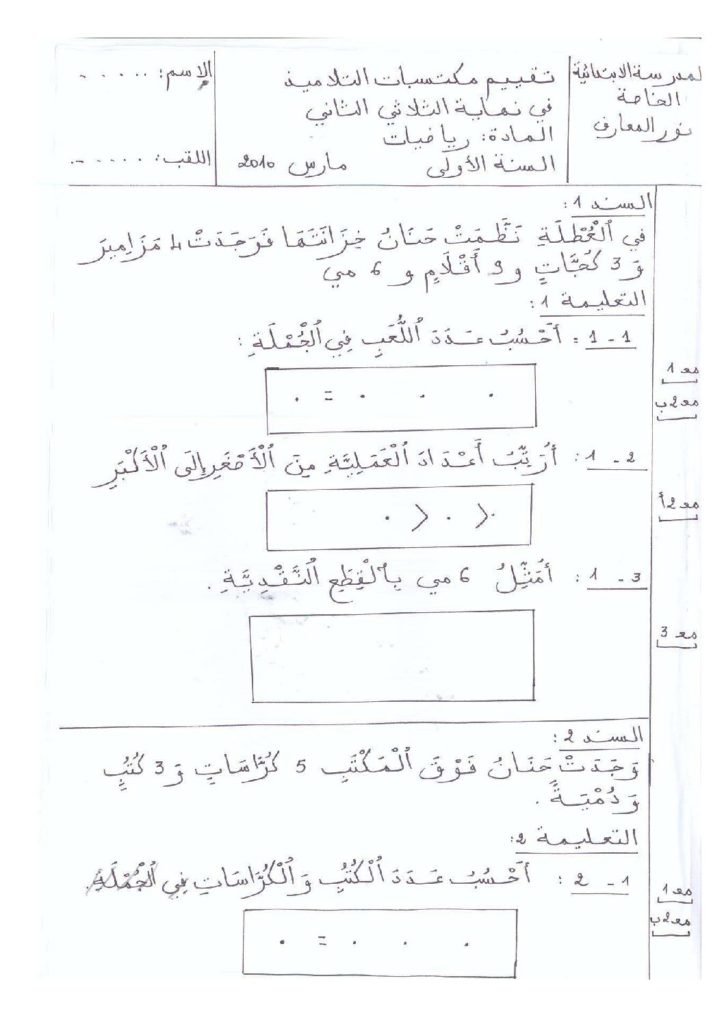 المدرسة الابتدائية
الخاصة
نور المعارف
تقييم مكتسبات التلاميذ
في نهاية الثلاثي الثاني
المادة: رياضيات
السنة الأولى مارس 2010
الاسم: .....
اللقب: .....
السند 1:
في اَلْعُطْلَةِ نَظَّمَتْ حَنَانُ خِزَانَتَهَا فَوَجَدَتْ 4 مَزَامِيرَ
وَ 3 كُجَّاتٍ و 9 أَقْلَامٍ و 6 مي
التعليمة 1:
1 - 1 : أَحْسُبُ عَدَدَ اَللُّعَبِ فِي اَلْجُمْلَةِ :
مع 1
مع 2 ب
. . . = .
2 - 1 : أُرَتِّبُ أَعْدَادَ اَلْعَمَلِيَّةِ مِنَ اَلْأَصْغَرِ إِلَى اَلْأَكْبَرِ
مع 2 أ
. > . > .
3 - 1 : أُمَثِّلُ 6 مي بِالْقِطَعِ اَلنَّقْدِيَّةِ .
مع 3
السند 2:
وَجَدَتْ حَنَانُ فَوْقَ اَلْمَكْتَبِ 5 كُرَّاسَاتٍ وَ 3 كُتُبٍ
وَ دُمْيَةً .
التعليمة 2:
1 - 2 : أَحْسُبُ عَدَدَ اَلْكُتُبِ وَ اَلْكُرَّاسَاتِ فِي اَلْجُمْلَةِ.
مع 1
مع 2 ب
. . . = .